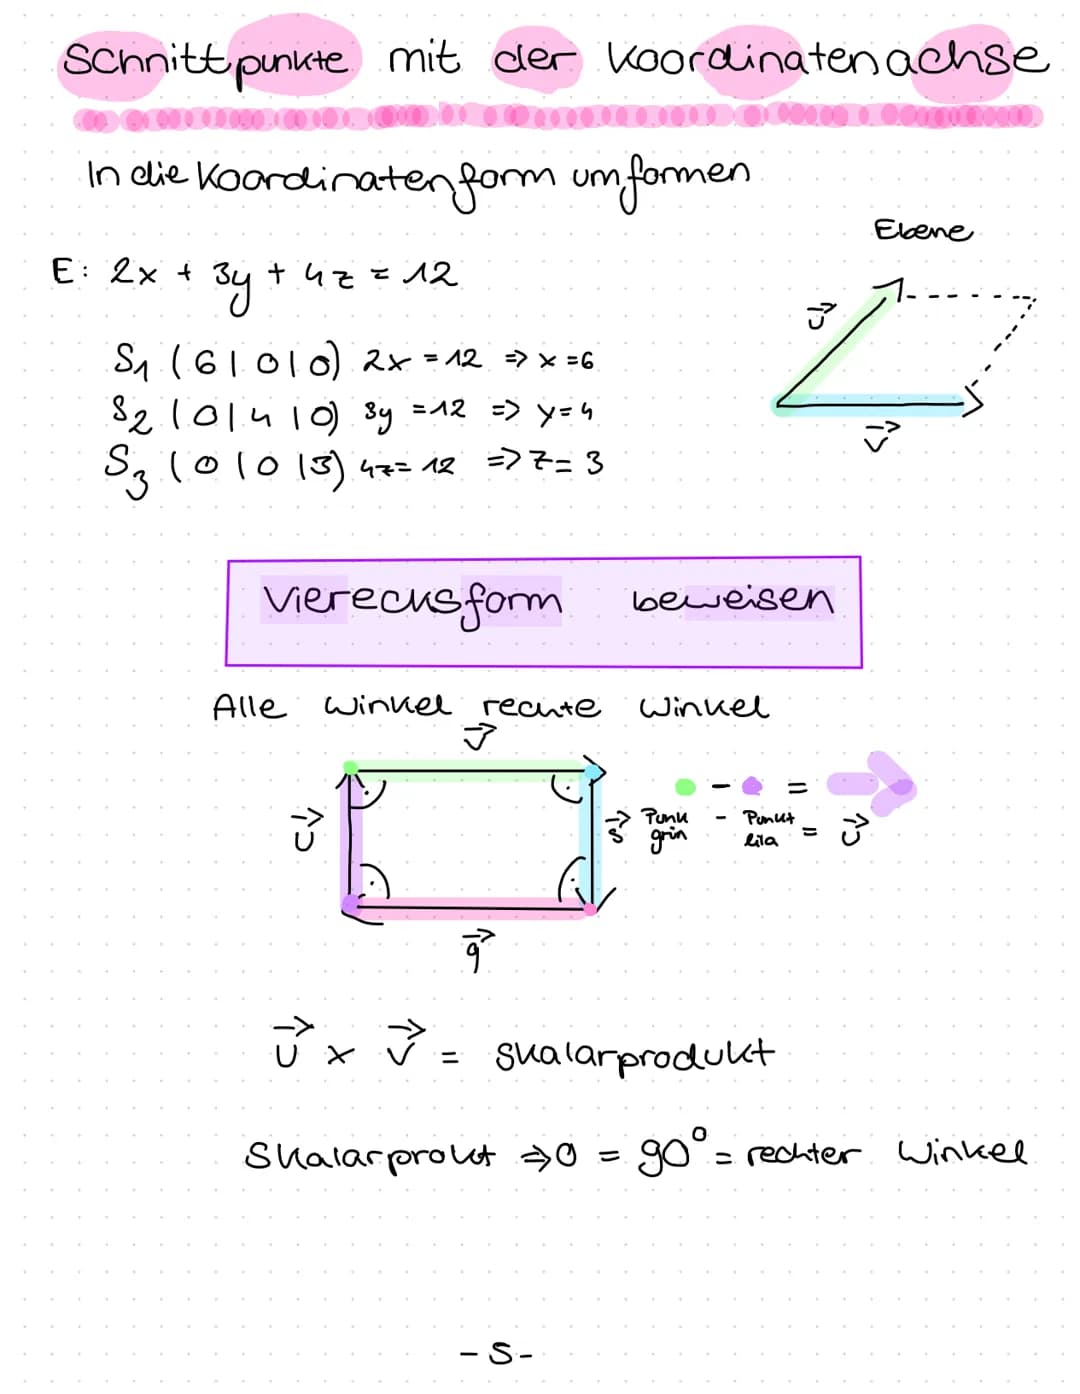 Schnittpunkte mit der Koordinatenachse
In die Koordinatenform umformen
Ebene
E: 2x + 3y + 4z = 12
S1 (6|0|0) 2x = 12 => x = 6
S2 (0|4|0) 3y = 12 => y = 4
S3 (0|0|3) 4z = 12 => z = 3
u→
v→
Vierecksform beweisen
Alle Winkel rechte Winkel
v→
u→
s→
q→
- =
Punk grün - Punkt lila = u→
u→ x v→ = Skalarprodukt
Skalarprokt => 0 = 90° = rechter Winkel
- 5 -